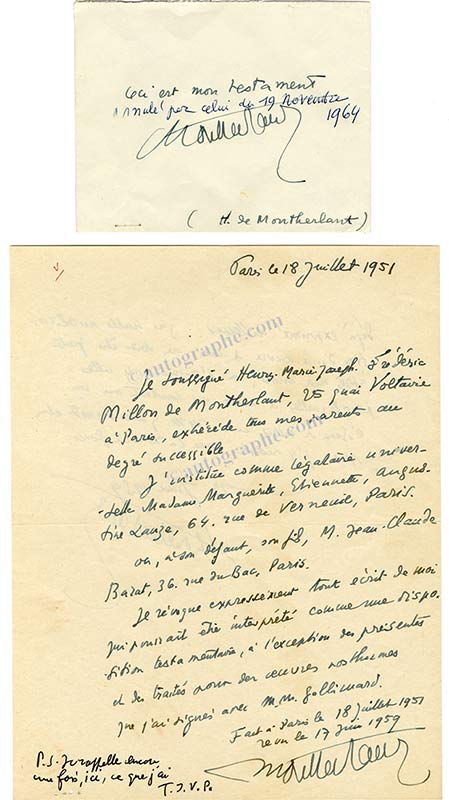 Ceci est mon testament
annulé par celui du 19 novembre
1964
Montherlant
(H. de Montherlant)
Paris le 18 juillet 1951
©autographe.com
Je soussigné Henry-Marie-Joseph-Frédéric
Millon de Montherlant, 25 quai Voltaire
à Paris, exhérède tous mes parents au
degré successible.
J'institue comme légataire univer-
-selle Madame Marguerite, Etiennette, Augus-
tine Lauze, 64. rue de Verneuil, Paris.
ou, à son défaut, son fils, M. Jean-Claude
Barat, 36. rue du Bac, Paris.
Je révoque expressément tout écrit de moi
qui pourrait être interprété comme une dispo-
sition testamentaire, à l'exception des présentes
et des traités pour des œuvres posthumes
que j'ai signés avec M.M. Gallimard.
Fait à Paris le 18 juillet 1951
revu le 17 juin 1959
Montherlant
P.S. Je rappelle encore
une fois, ici, ce que j'ai
T.S.V.P.